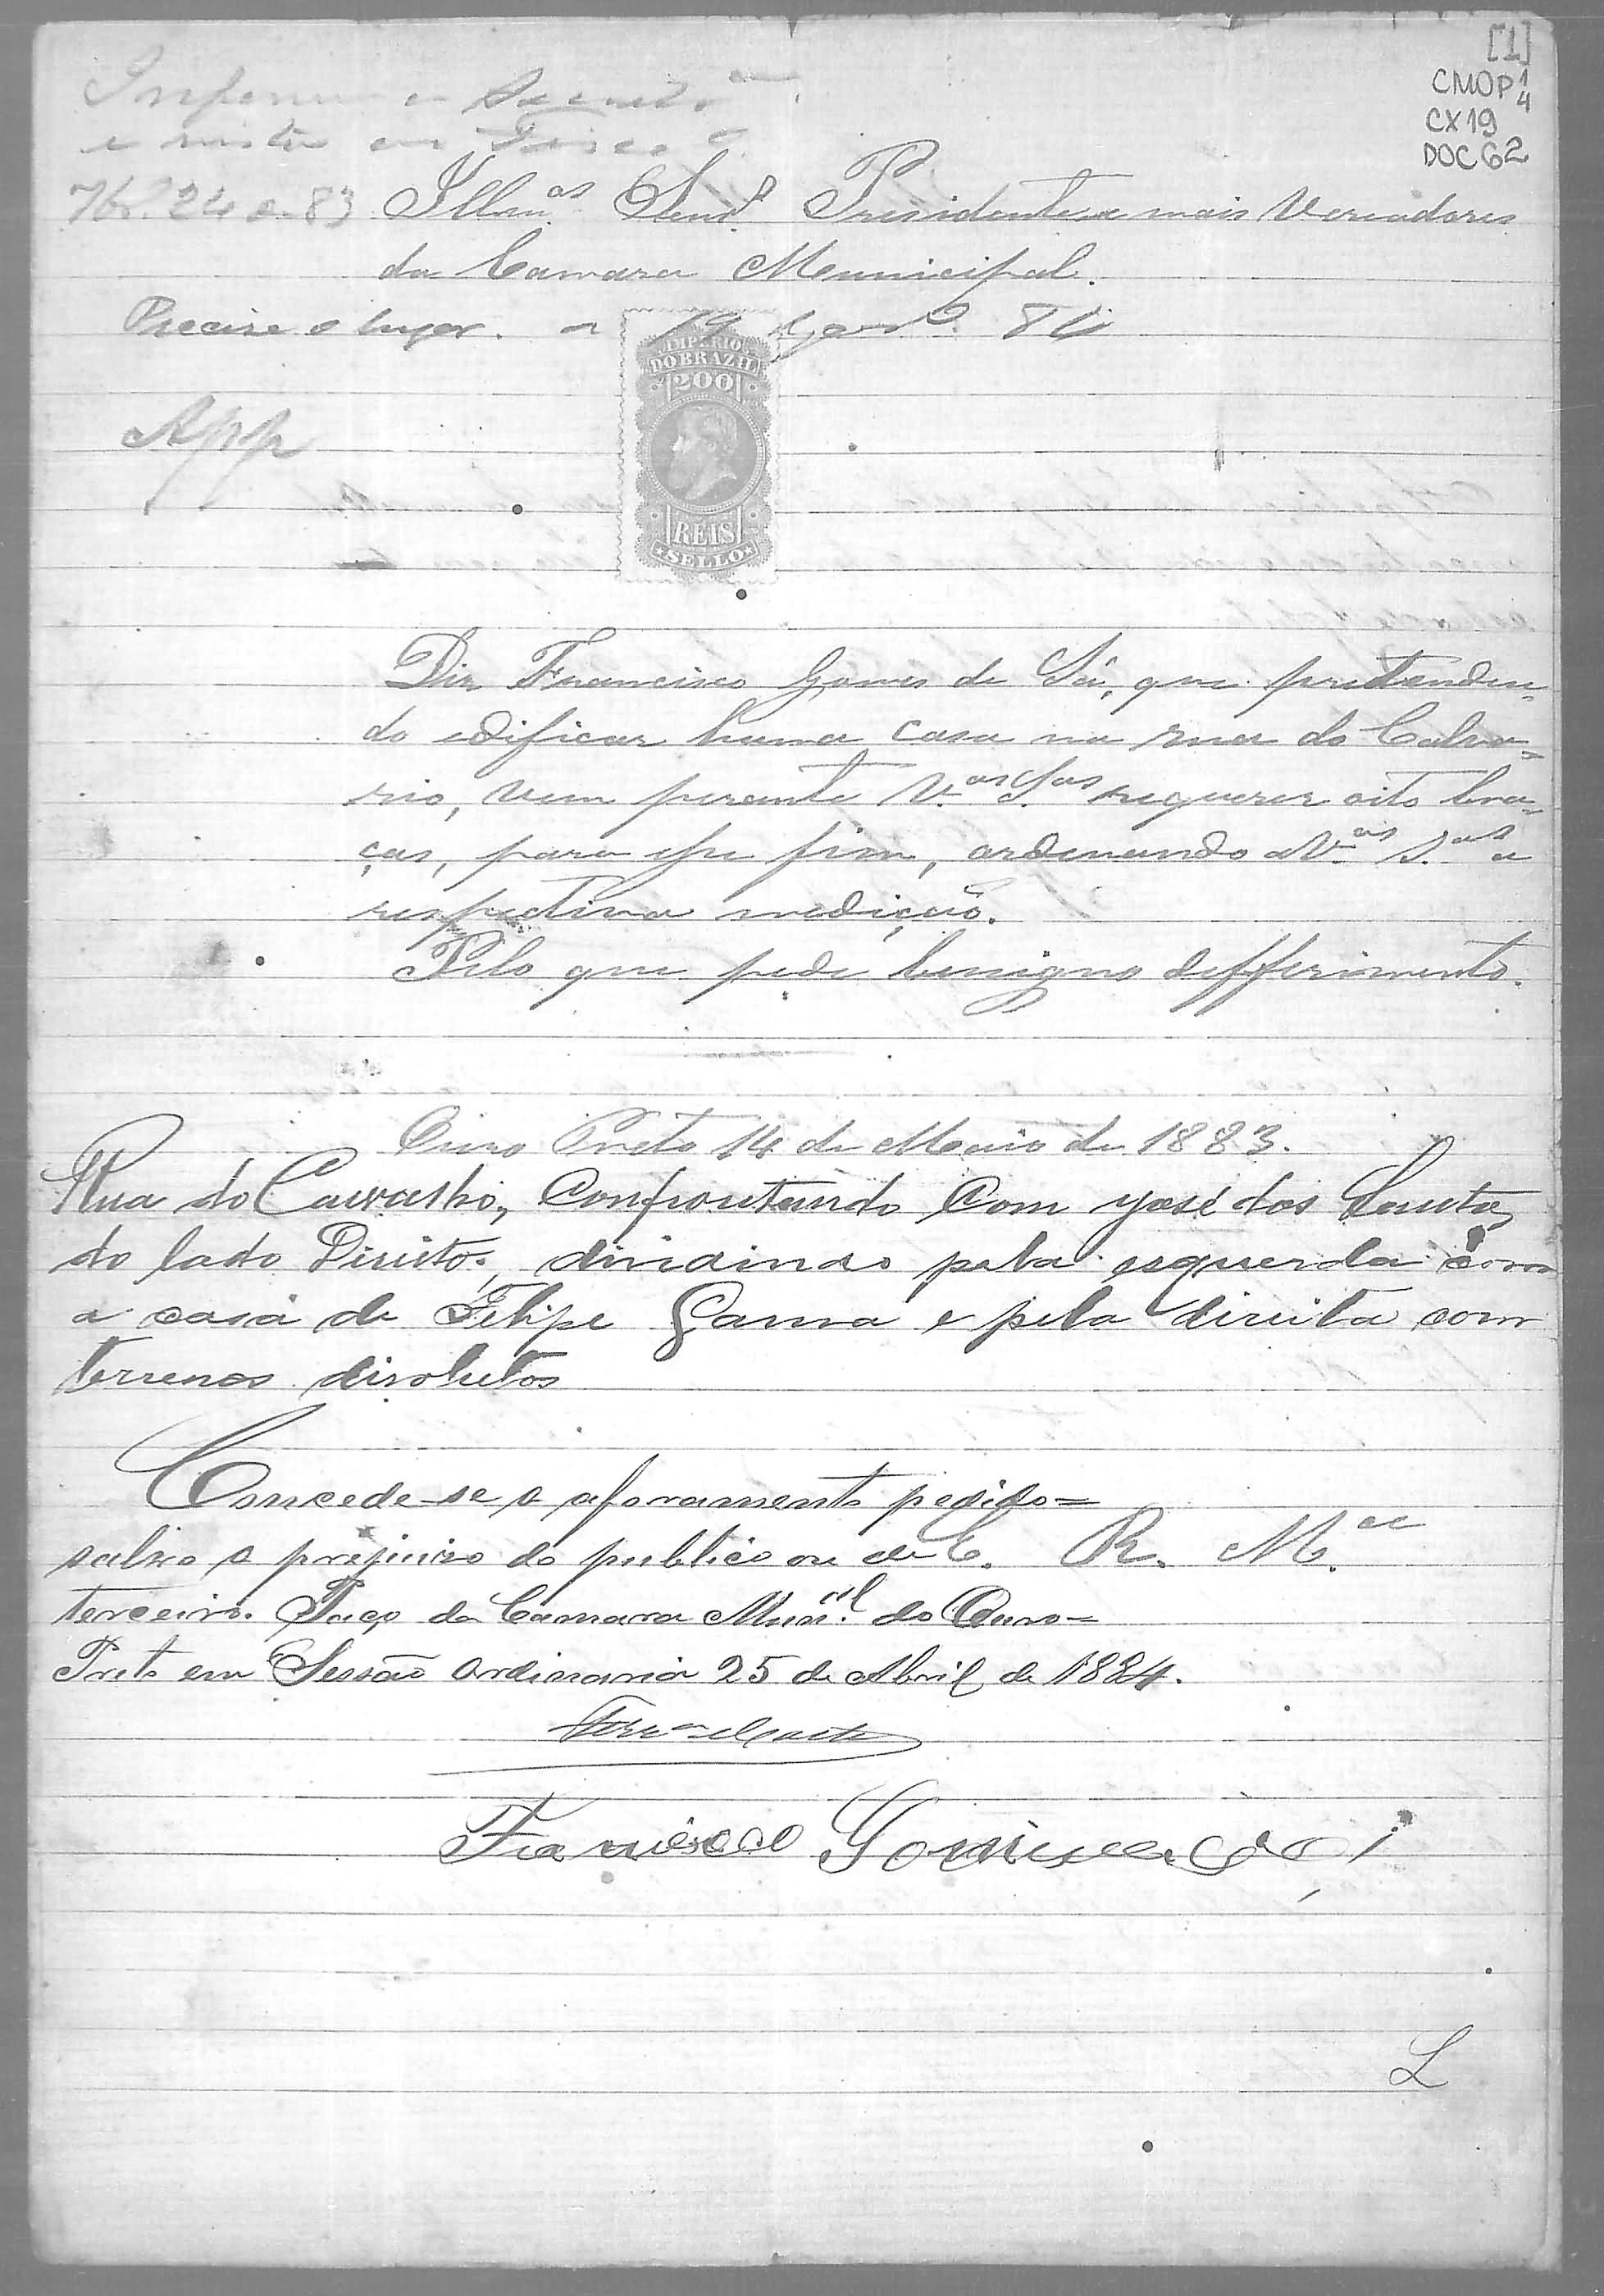 [1]
CMOP 1
4
CX 19
DOC 62
e vista ao Fiscal
24 83
Illm.os Senr.s Presidente e mais Vereadores
da Camara Municipal.
Precise o lugar. 84
IMPERIO
DO BRAZIL
200
REIS
SELLO
App
Diz Francisco Gomes de Sá, que pretenden-
do edificar huma casa na rua do Calva-
rio, vem perante V.as S.as requerer oito bra-
ças, para esse fim, ordenando V.as S.as a
respectiva medição.
Pelo que pede benigno defferimento.
Ouro Preto 14 de Maio de 1883.
Rua do confrontando com José dos Santos
do lado Direito, dividindo pela esquerda com
a casa de Felipe Gama e pela direita com
terrenos divolutos
Concede-se o aforamento pedido=
salvo o prejuizo do publico ou de
E. R. M.ce
terceiro. Paço da Camara Mun.al do Ouro=
Preto em Sessão Ordinaria 25 de Abril de 1884.
Francisco Gomes de Sá
L